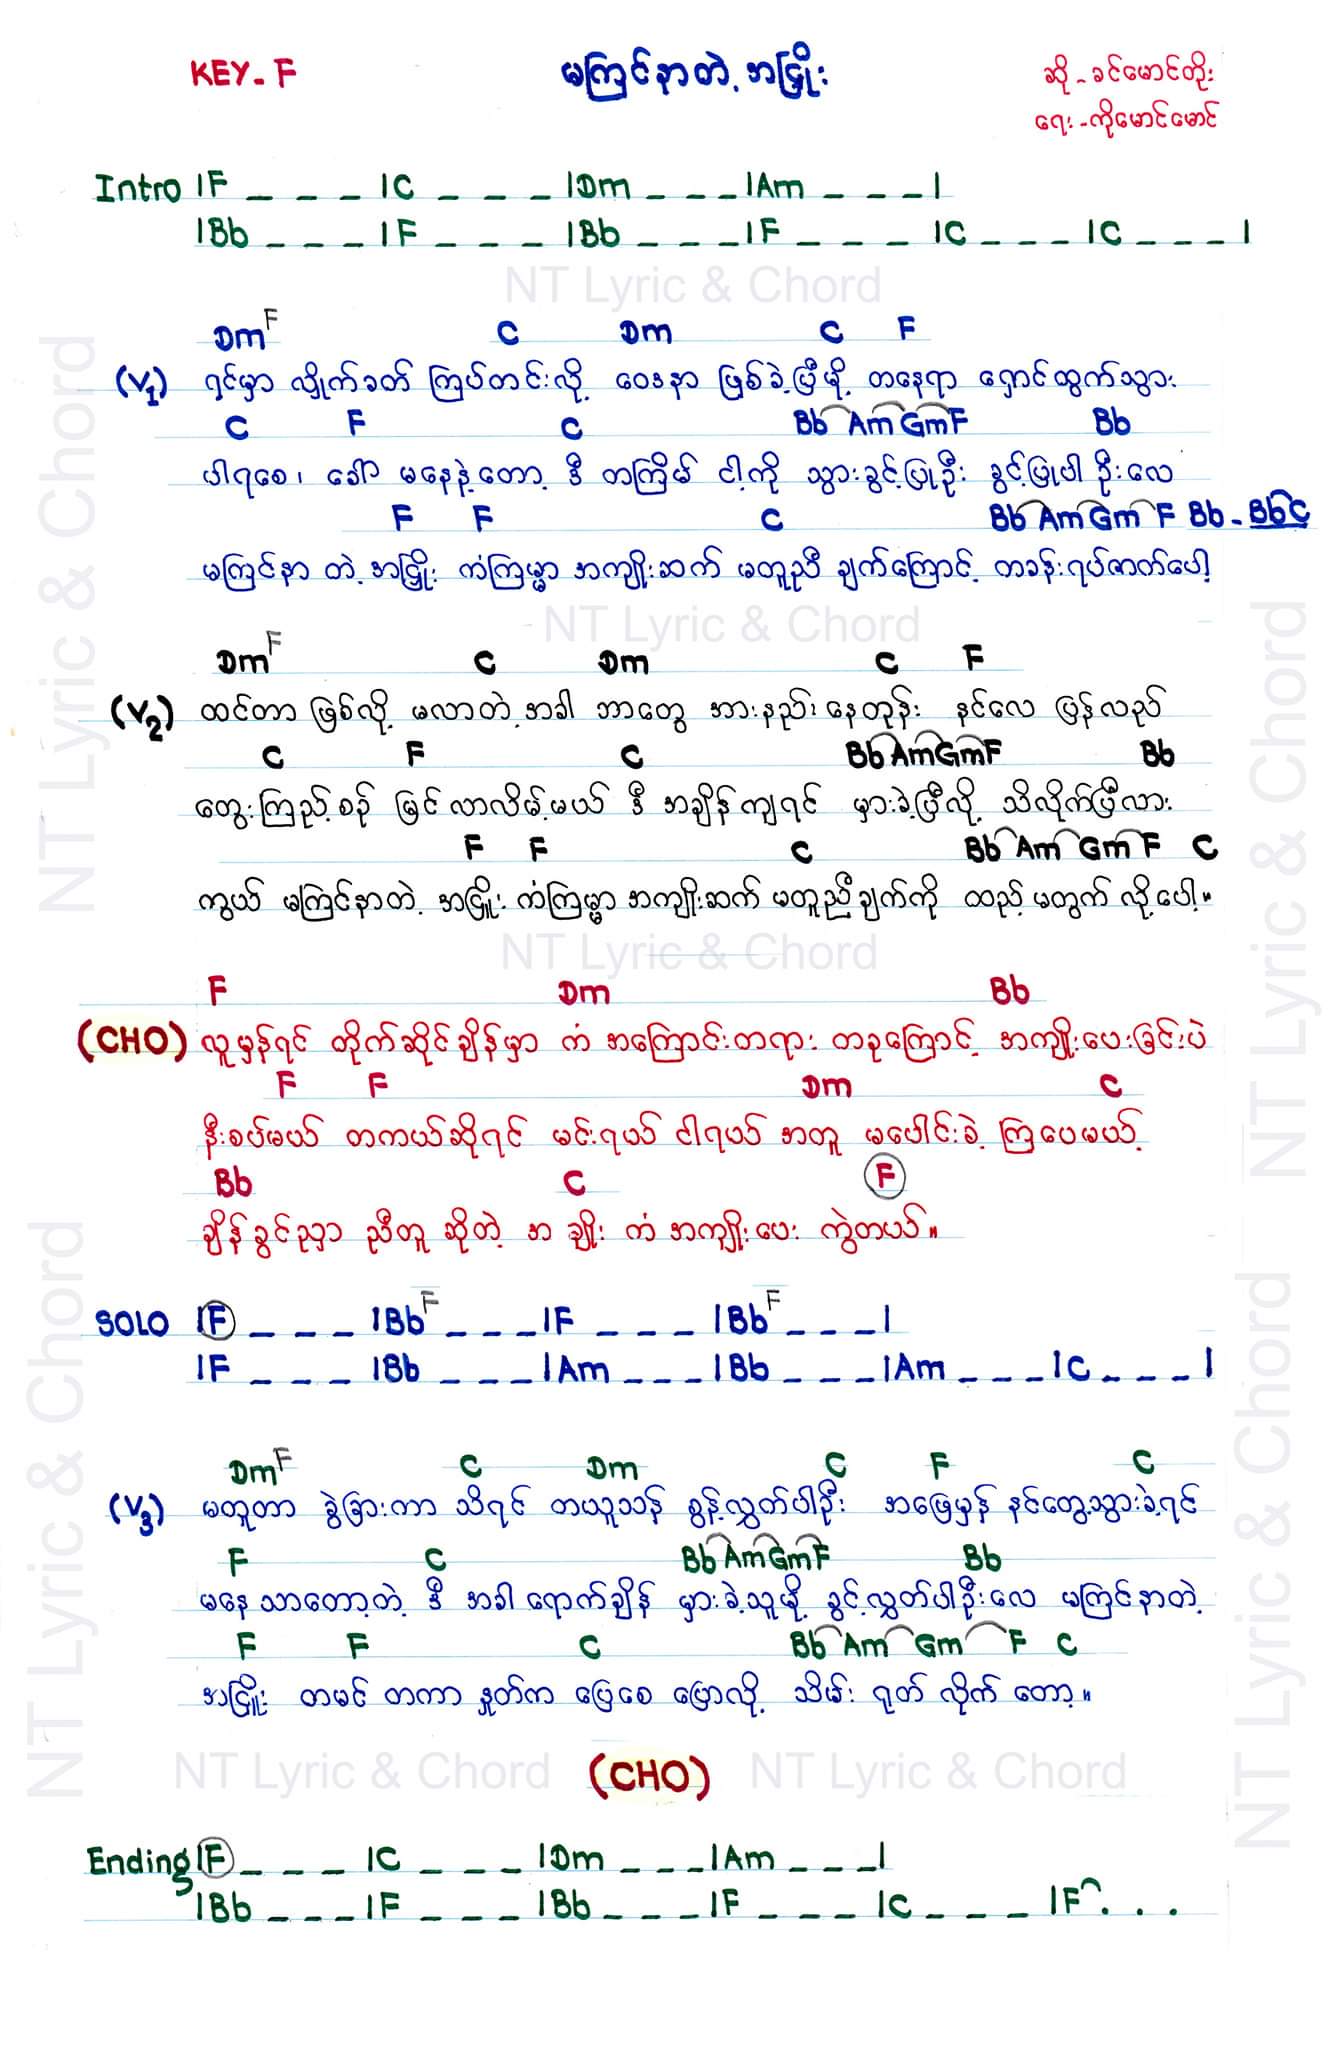 KEY - F
မကြင်နာတဲ့ အငြိုး
ဆို - ခင်မောင်တိုး
ရေး - ကိုမောင်မောင်
Intro |F _ _ _ |C _ _ _ |Dm _ _ _ |Am _ _ _ |
|Bb _ _ _ |F _ _ _ |Bb _ _ _ |F _ _ _ |C _ _ _ |C _ _ _ |
NT Lyric & Chord
Dm F C Dm C F
(V1) ရင်မှာ လှိုက်ခတ် ကြပ်တင်းလို့ ဝေဒနာ ဖြစ်ခဲ့ပြီမို့ တနေရာ ရှောင်ထွက်သွား
C F C Bb Am Gm F Bb
ပါရစေ၊ ခေါ် မနေနဲ့တော့ ဒီ တကြိမ် ငါ့ကို သွားခွင့်ပြုဦး ခွင့်ပြုပါ ဦးလေ
F F C Bb Am Gm F Bb - Bb C
မကြင်နာ တဲ့ အငြိုး ကံကြမ္မာ အကျိုးဆက် မတူညီ ချက်ကြောင့် တခန်းရပ်ဇာတ်ပေါ့
NT Lyric & Chord
Dm F C Dm C F
(V2) ထင်တာ ဖြစ်လို့ မလာတဲ့ အခါ ဘာတွေ အားနည်း နေတုန်း နင်လေ ပြန်လည်
C F C Bb Am Gm F Bb
တွေးကြည့်စဉ် မြင်လာလိမ့်မယ် ဒီ အချိန်ကျရင် မှားခဲ့ပြီလို့ သိလိုက်ပြီလား
F F C Bb Am Gm F C
ကွယ် မကြင်နာတဲ့ အငြိုး ကံကြမ္မာ အကျိုးဆက် မတူညီချက်ကို ထည့်မတွက် လို့ပေါ့။
NT Lyric & Chord
F Dm Bb
(CHO) လူမှန်ရင် တိုက်ဆိုင်ချိန်မှာ ကံ အကြောင်းတရား တခုကြောင့် အကျိုးပေးခြင်းပဲ
F F Dm C
နီးစပ်မယ် တကယ်ဆိုရင် မင်းရယ် ငါရယ် အတူ မပေါင်းခဲ့ ကြပေမယ့်
Bb C F
ချိန်ခွင်ညှာ ညီတူ ဆိုတဲ့ အ ချိုး ကံ အကျိုးပေး ကွဲတယ်။
SOLO |F _ _ _ |Bb F _ _ _ |F _ _ _ |Bb F _ _ _ |
|F _ _ _ |Bb _ _ _ |Am _ _ _ |Bb _ _ _ |Am _ _ _ |C _ _ _ |
Dm F C Dm C F C
(V3) မတူတာ ခွဲခြားကာ သိရင် တယူသန် စွန့်လွှတ်ပါဦး အဖြေမှန် နင်တွေ့သွားခဲ့ရင်
F C Bb Am Gm F Bb
မနေ သာတော့တဲ့ ဒီ အခါ ရောက်ချိန် မှားခဲ့သူမို့ ခွင့်လွှတ်ပါဦးလေ မကြင်နာတဲ့
F F C Bb Am Gm F C
အငြိုး တမင် တကာ နှုတ်က ဖြေစေ ပြောလို့ သိမ်း ရုတ် လိုက် တော့။
NT Lyric & Chord (CHO) NT Lyric & Chord
Ending |F _ _ _ |C _ _ _ |Dm _ _ _ |Am _ _ _ |
|Bb _ _ _ |F _ _ _ |Bb _ _ _ |F _ _ _ |C _ _ _ |F . . .
NT Lyric & Chord
NT Lyric & Chord
NT Lyric & Chord
NT Lyric & Chord